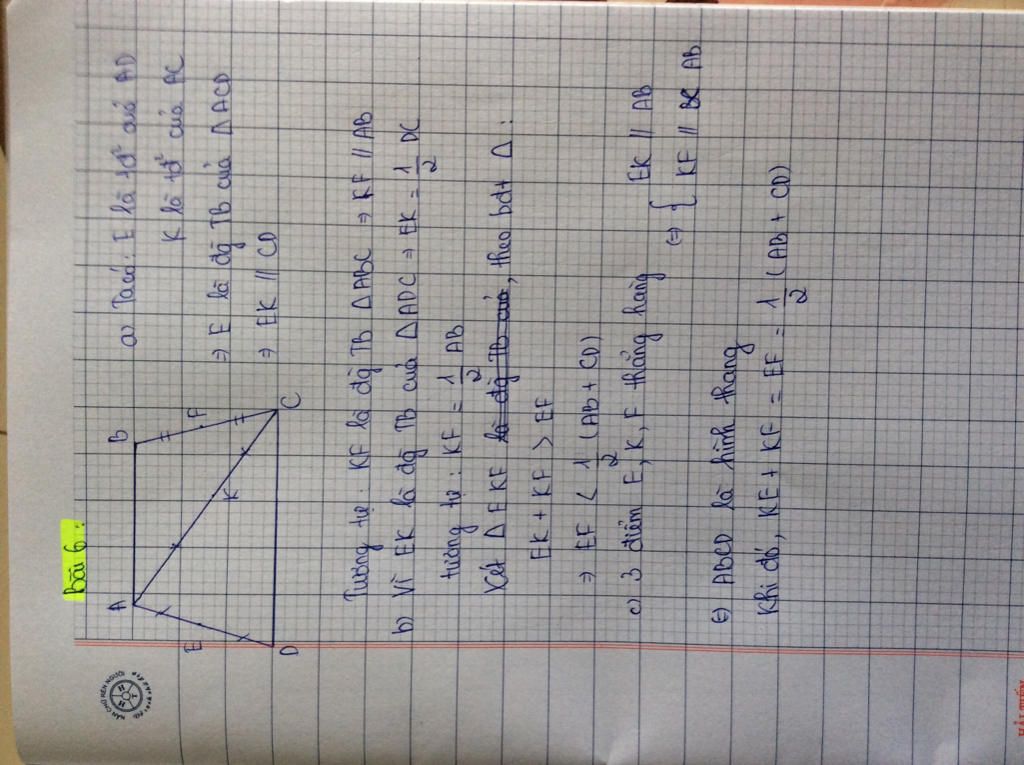 Bài 6:
A
B
E
F
K
D
C
a) Ta có: E là tđ² của AD
K là tđ² của AC
⇒ E là đg TB của △ACD
⇒ EK // CD
Tương tự: KF là đg TB △ABC ⇒ KF // AB
b) Vì EK là đg TB của △ADC ⇒ EK = 1/2 DC
tương tự: KF = 1/2 AB
Xét △EKF là đg TB của, theo bđt △:
EK + KF > EF
⇒ EF < 1/2 (AB + CD)
c) 3 điểm E, K, F thẳng hàng
⇔ { EK // AB
KF // BC AB
⇔ ABCD là hình thang
Khi đó, KE + KF = EF = 1/2 (AB + CD)
HẢI TIẾN